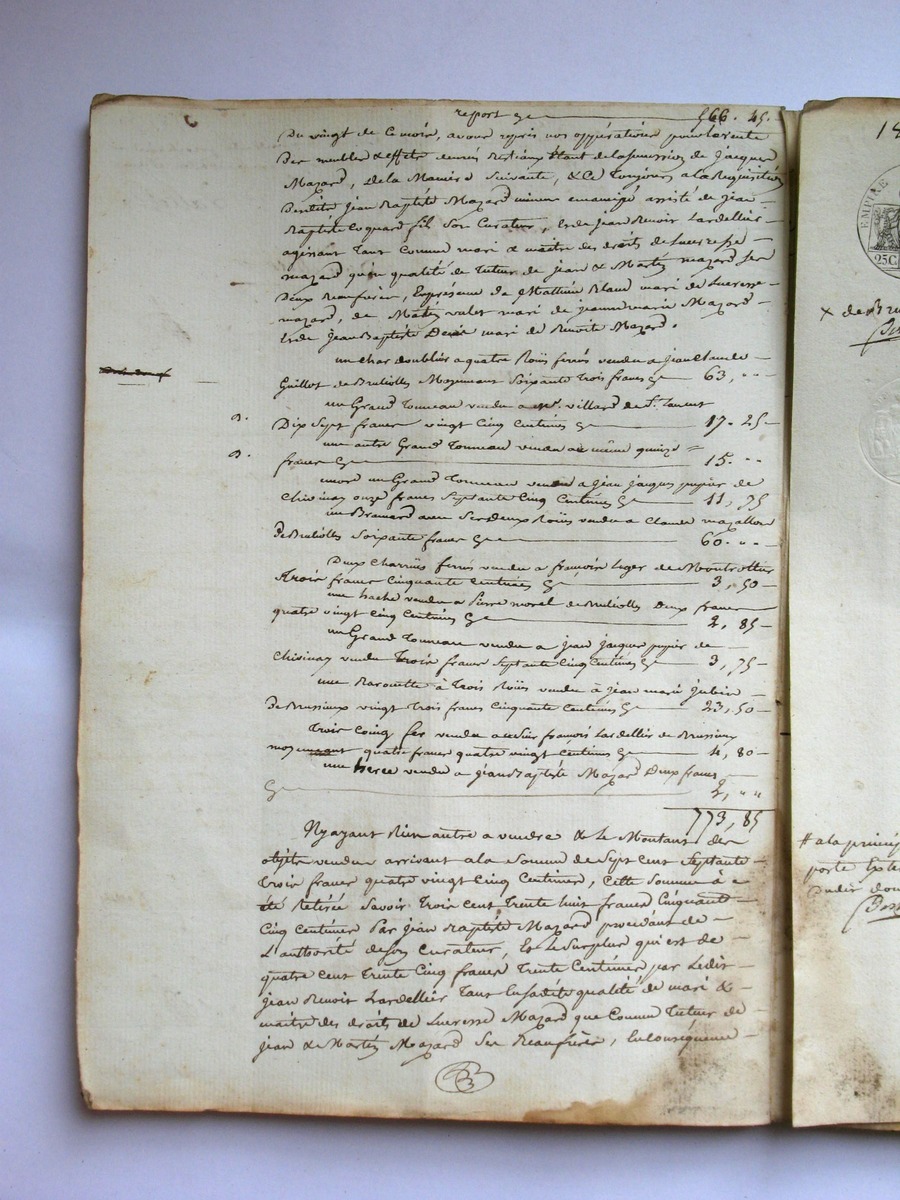 report 566. 45.
Du vingt de ce mois, avons repris nos opérations pour la vente
des meubles & effets restans étant de la succession de Jacques
Mazard, de la maniere suivante, & ce toujours a la Requisition
dudit Jean Baptiste Mazard mineur emancipé assisté de Jean
Baptiste Coquard fils son Curateur, & de Jean Benoit Lardellier
agissant tant comme mari & maitre des droits de Lucresse
mazard qu'en qualité de tuteur de jean & Martin mazard ses
deux Beaufrères, En présence de Matthieu Blanc mari de Lucresse
mazard, de valet mari de jeanne marie Mazard
& de Jean Baptiste mari de Benoite Mazard.
un char doublier a quatre Roües ferrés vendu a jean Claude
Guillot de Brullioles Moyennant Soixante trois francs 63, " "
un Grand Tonneau vendu a villard de St. Laurent
Dix Sept francs vingt Cinq Centimes 17. 25
une autre Grand Tonneau vendu au même quinze
francs 15. " "
encore un Grand Tonneau vendu a jean jacques pupier de
Chivinay onze francs Septante Cinq Centimes 11, 75
un Brancard avec Ses deux Roües vendu a Claude mazallon
de Brullioles Soixante francs 60. " "
Deux Charrües ferrés vendu a françois Leger de Montrottier
Trois francs Cinquante Centimes 3, 50
une hache vendu a Pierre morel de Brullioles Deux francs
quatre vingt Cinq Centimes 2, 85
un Grand Tonneau vendu a jean jacques pupier de
Chivinay vendu Trois francs Septante Cinq Centimes 3, 75
une Barouette à Trois Roües vendu à jean marie jubin
de Brussieux vingt Trois francs Cinquante Centimes 23, 50
Trois Coing fer vendu au Sieur françois Lardellier de Brussieux
moyennant quatre francs quatre vingt Centimes 4, 80
une herce vendu a jean Baptiste Mazard Deux francs
2, " "
773, 85
N'y ayant Rien autre a vendre & le Montant des
objets vendus arrivant a la Somme de Sept Cent Septante
Trois francs quatre vingt Cinq Centimes, Cette Somme à
été Retirée Savoir Trois cent Trente huit francs Cinquante
Cinq Centimes Par jean Baptiste Mazard procédant de
L'authorité de son Curateur, Et le Surplus qui est de
quatre cent Trente Cinq francs Trente Centimes par Ledit
jean Benoit Lardellier Tant En sadite qualité de mari &
maitre des droits de Lucresse Mazard que Comme Tuteur de
jean & Martin Mazard Ses Beaufrères, En Conséquence
EMPIRE
25 C
x de Bru
# a la princip
porte Exte